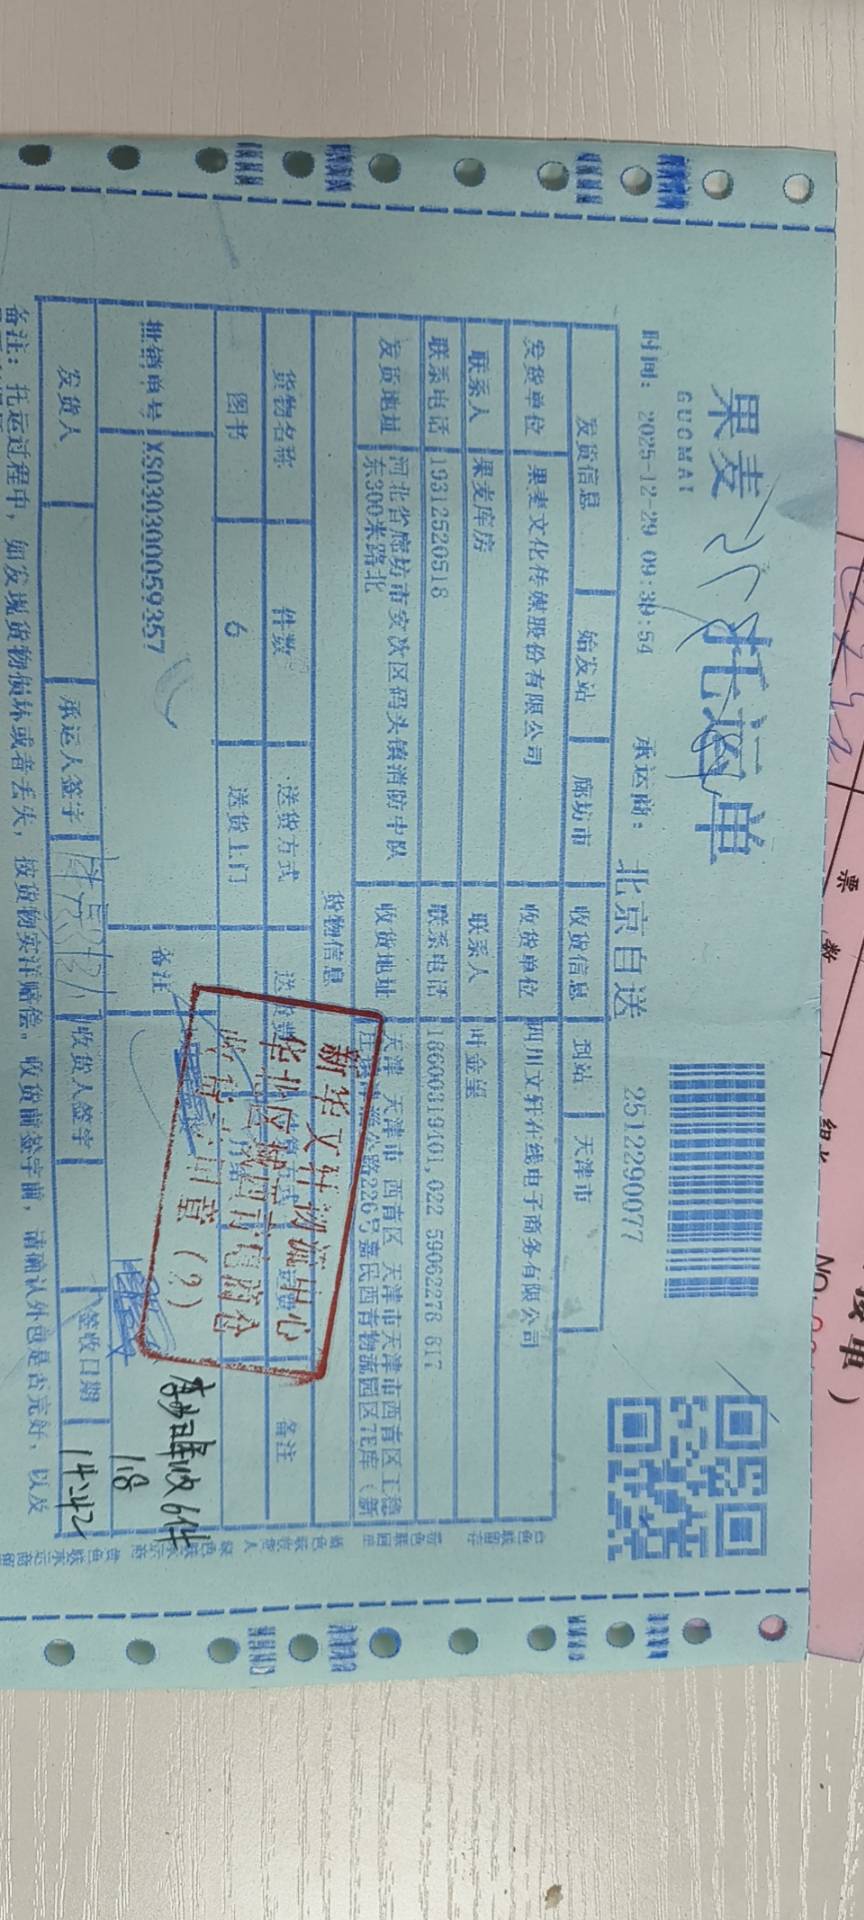 果麦
GUOMAI
托运单
2512290077
时间: 2025-12-29 09:39:54
承运商: 北京自送
发货信息 始发站 廊坊市 收货信息 到站 天津市
发货单位 果麦文化传媒股份有限公司 收货单位 四川文轩在线电子商务有限公司
联系人 果麦库房 联系人 叶金星
联系电话 19312520518 联系电话 18600319101,022 59062278 817
发货地址 河北省廊坊市安次区码头镇消防中队东300米路北 收货地址 天津 天津市 西青区 天津市天津市西青区 公路226号嘉民西青物流园区7E库(新
货物信息
货物名称 件数 送货方式 备注
图书 6 送货上门
批销单号 XS030300059357 备注
新华文轩物流中心
华北区
章(2)
实收6件
1.8
发货人 承运人签字 收货人签字 签收日期 14:42
备注: 托运过程中, 如发现货物损坏或者丢失, 按货物实洋赔偿。收货前签字前, 请确认外包是否完好, 以及
票数
组长
NO:
单)